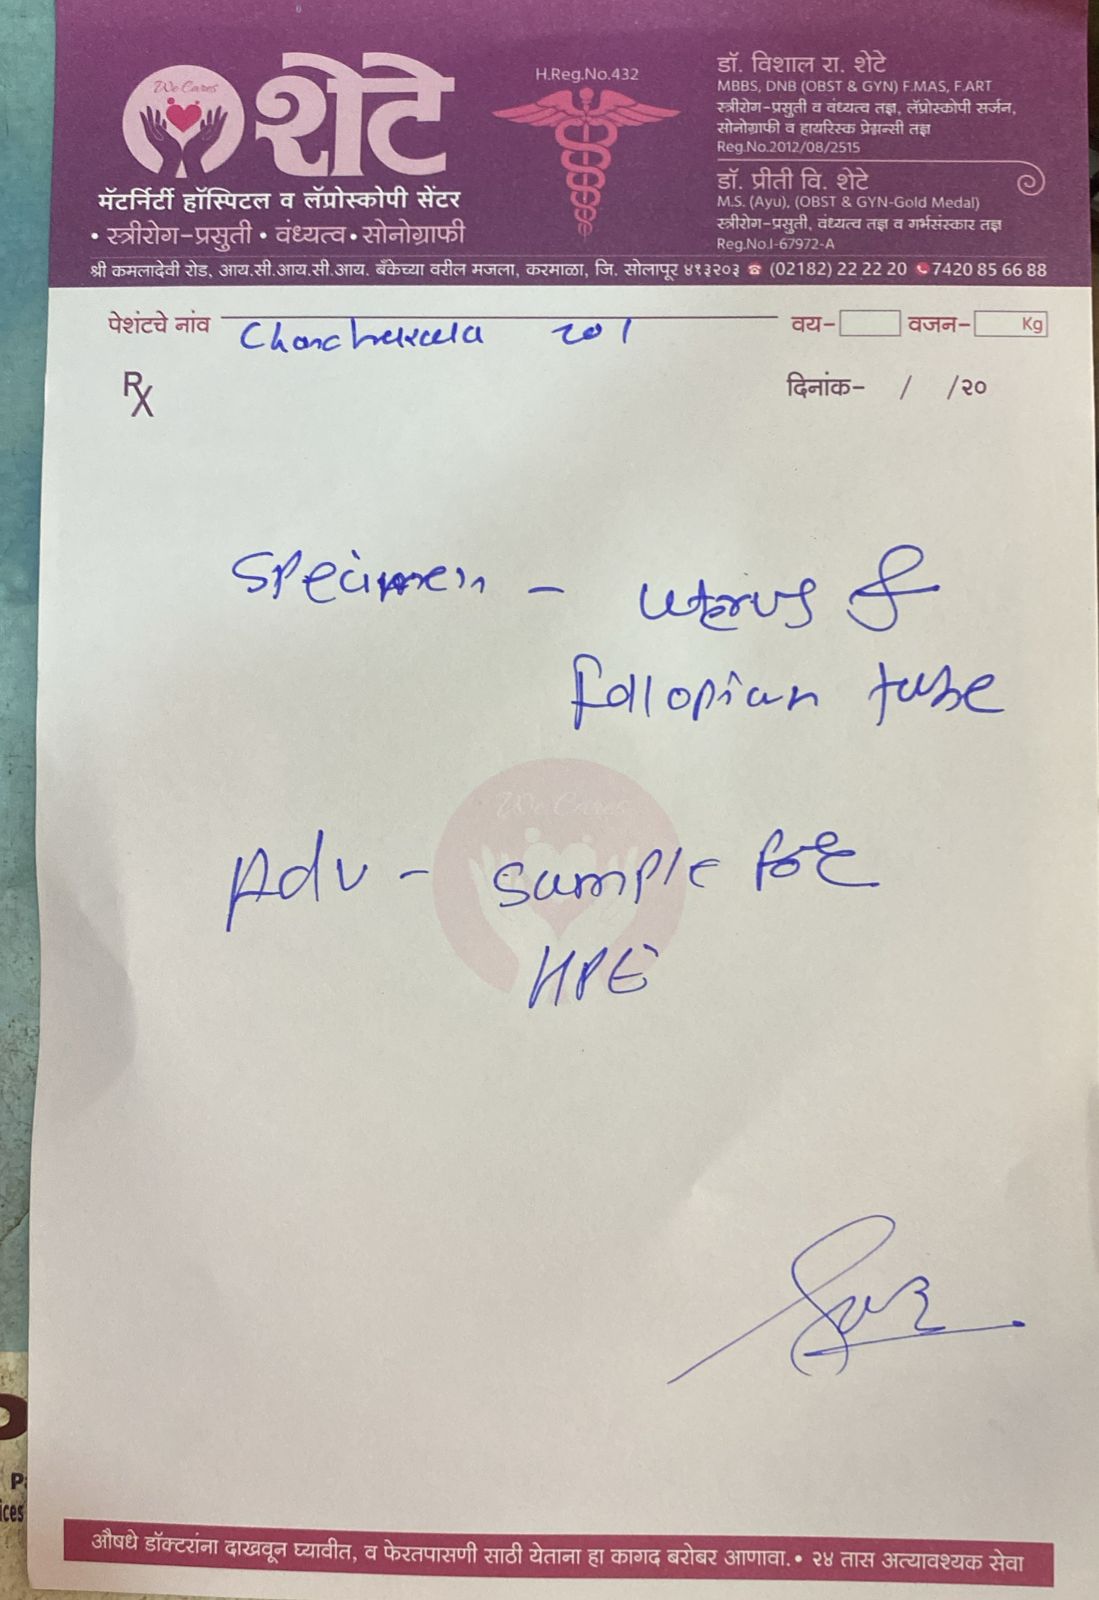 We Cares
शेटे
मॅटर्निटी हॉस्पिटल व लॅप्रोस्कोपी सेंटर
• स्त्रीरोग-प्रसुती • वंध्यत्व • सोनोग्राफी
H.Reg.No.432
डॉ. विशाल रा. शेटे
MBBS, DNB (OBST & GYN) F.MAS, F.ART
स्त्रीरोग-प्रसुती व वंध्यत्व तज्ञ, लॅप्रोस्कोपी सर्जन,
सोनोग्राफी व हायरिस्क प्रेग्नन्सी तज्ञ
Reg.No.2012/08/2515
डॉ. प्रीती वि. शेटे
M.S. (Ayu), (OBST & GYN-Gold Medal)
स्त्रीरोग-प्रसुती, वंध्यत्व तज्ञ व गर्भसंस्कार तज्ञ
Reg.No.I-67972-A
श्री कमलादेवी रोड, आय.सी.आय.सी.आय. बँकेच्या वरील मजला, करमाळा, जि. सोलापूर ४१३२०३ ☎ (02182) 22 22 20 7420 85 66 88
पेशंटचे नांव वय- वजन- Kg
Rx दिनांक- / /२०
Specimen - uterus &
fallopian tube
We Cares
Adv - sample for
HPE
औषधे डॉक्टरांना दाखवून घ्यावीत, व फेरतपासणी साठी येताना हा कागद बरोबर आणावा. • २४ तास अत्यावश्यक सेवा